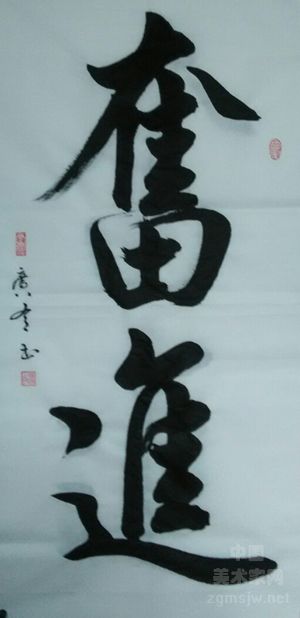 奮
進
廣
書
中国
美术家网
zgmsjw.net